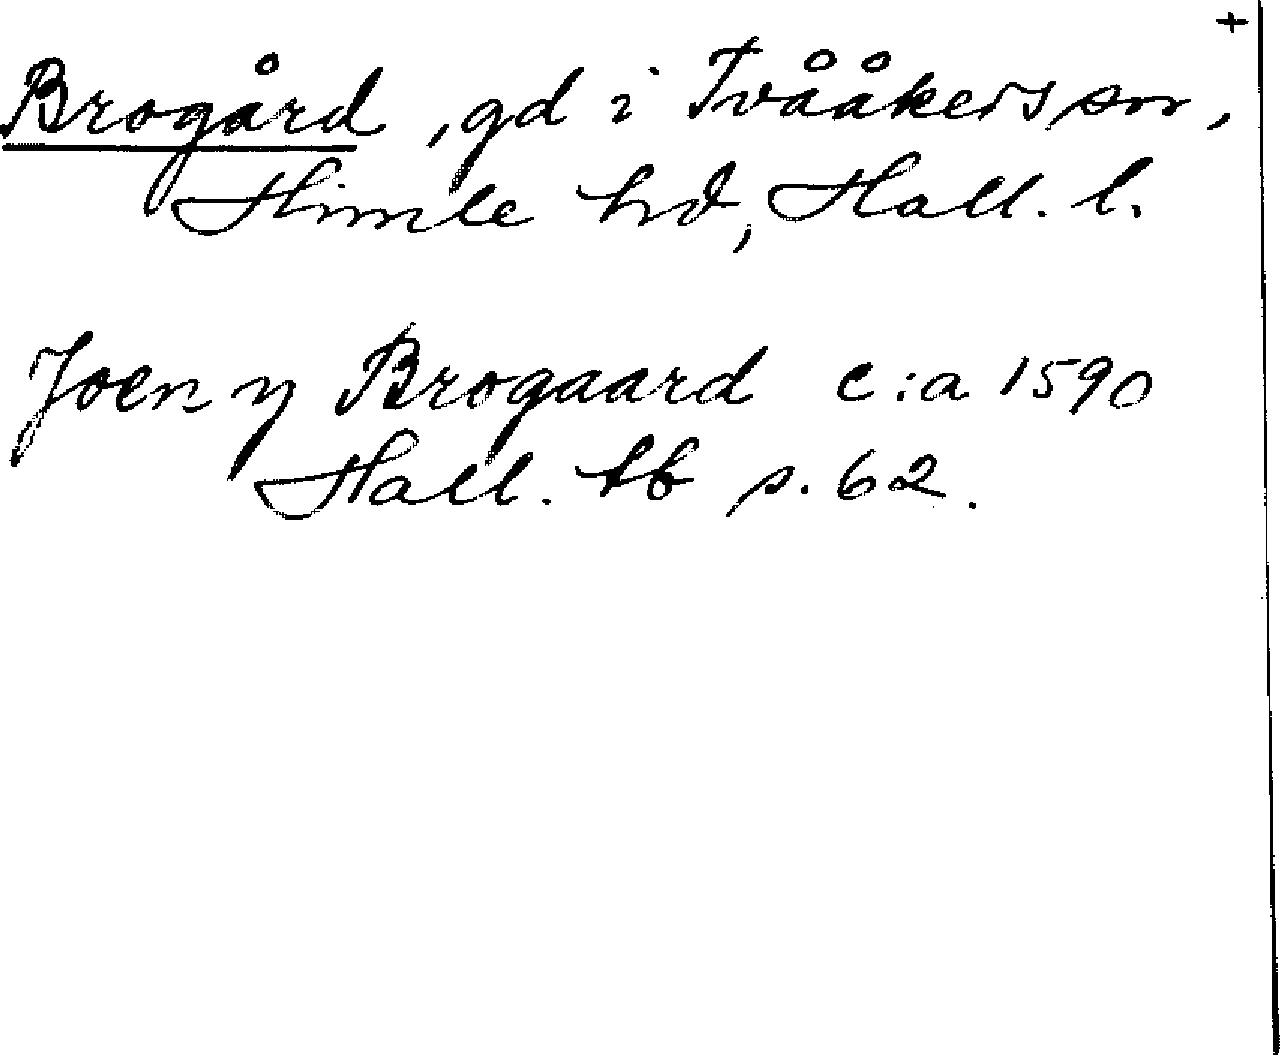 +
Brogård, gd i Tvååkers sn,
Himle hd, Hall. l.
Joen y Brogaard c:a 1590
Hall. tb s. 62.